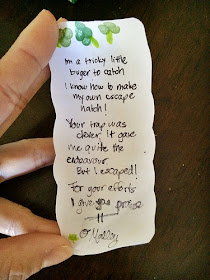 Im a tricky little
buger to catch
I know how to make
my own escape
hatch!
Your trap was
clever, it gave
me quite the
endeavour.
But I escaped!
For your efforts
I give you praise
O'Malley